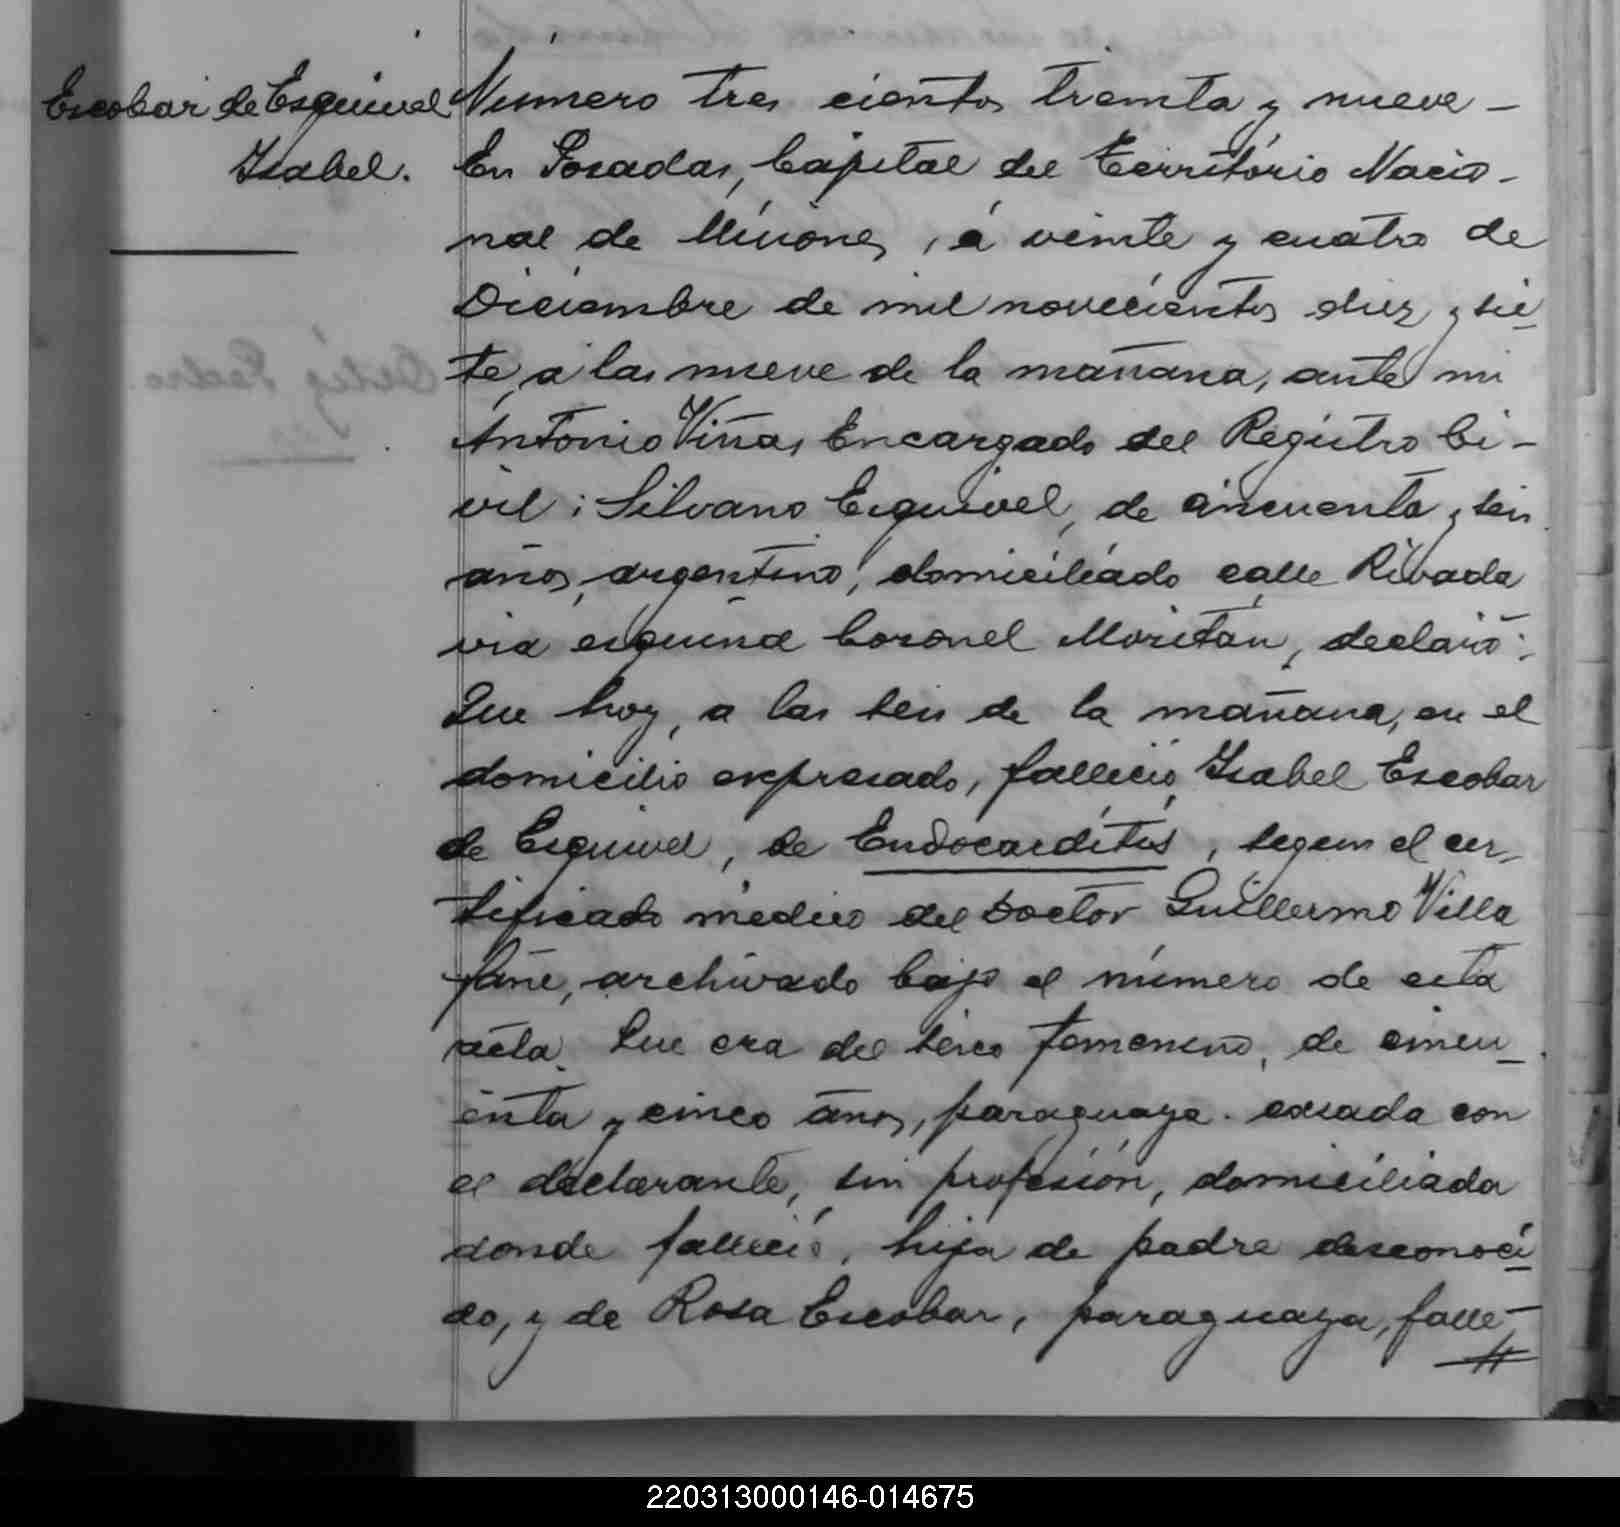 Escobar de Esquivel
Isabel.
Número tres cientos treinta y nueve –
En Posadas, Capital del Territorio Nacio-
nal de Misiones, á veinte y cuatro de
Diciembre de mil novecientos diez y sie-
te, a las nueve de la mañana, ante mi
Antonio Viñas, Encargado del Registro Ci-
vil; Silvano Esquivel, de cincuenta y seis
años, argentino, domiciliado calle Rivada
via esquina Coronel Moritán, declaró:
Que hoy, a las seis de la mañana, en el
domicilio expresado, falleció Isabel Escobar
de Esquivel, de Endocarditis, segun el cer-
tificado médico del Doctor Guillermo Villa
fañe, archivado bajo el número de esta
acta. Que era del sexo femenino, de cincu-
enta y cinco años, paraguaya. casada con
el declarante, sin profesión, domiciliada
donde falleció, hija de padre desconoci-
do, y de Rosa Escobar, paraguaya, falle-
Pedro
220313000146-014675